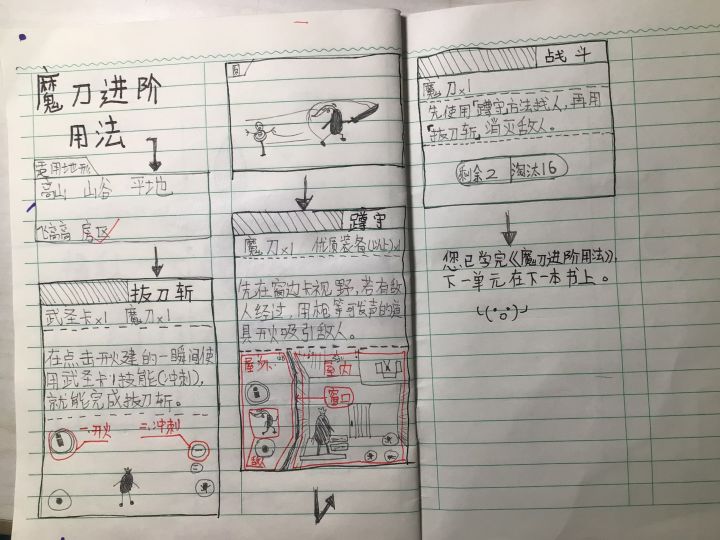 魔刀进阶
用法
专用地形
高山 山谷 平地
房区
拔刀斩
武圣卡x1 魔刀x1
在点击开火建的一瞬间使
用武圣卡1技能(冲刺),
就能完成拔刀斩。
一.开火 二.冲刺
图
蹲守
魔刀x1 优质装备(以上)x1
先在窗边卡视野,若有敌
人经过,用枪等可发声的道
具开火吸引敌人。
屋外
室内
窗口
敌人
战斗
魔刀x1
先使用「蹲守」方法找人,再用
「拔刀斩」消灭敌人。
剩余2 淘汰16
您已学完《魔刀进阶用法》,
下一单元在下一本书上。